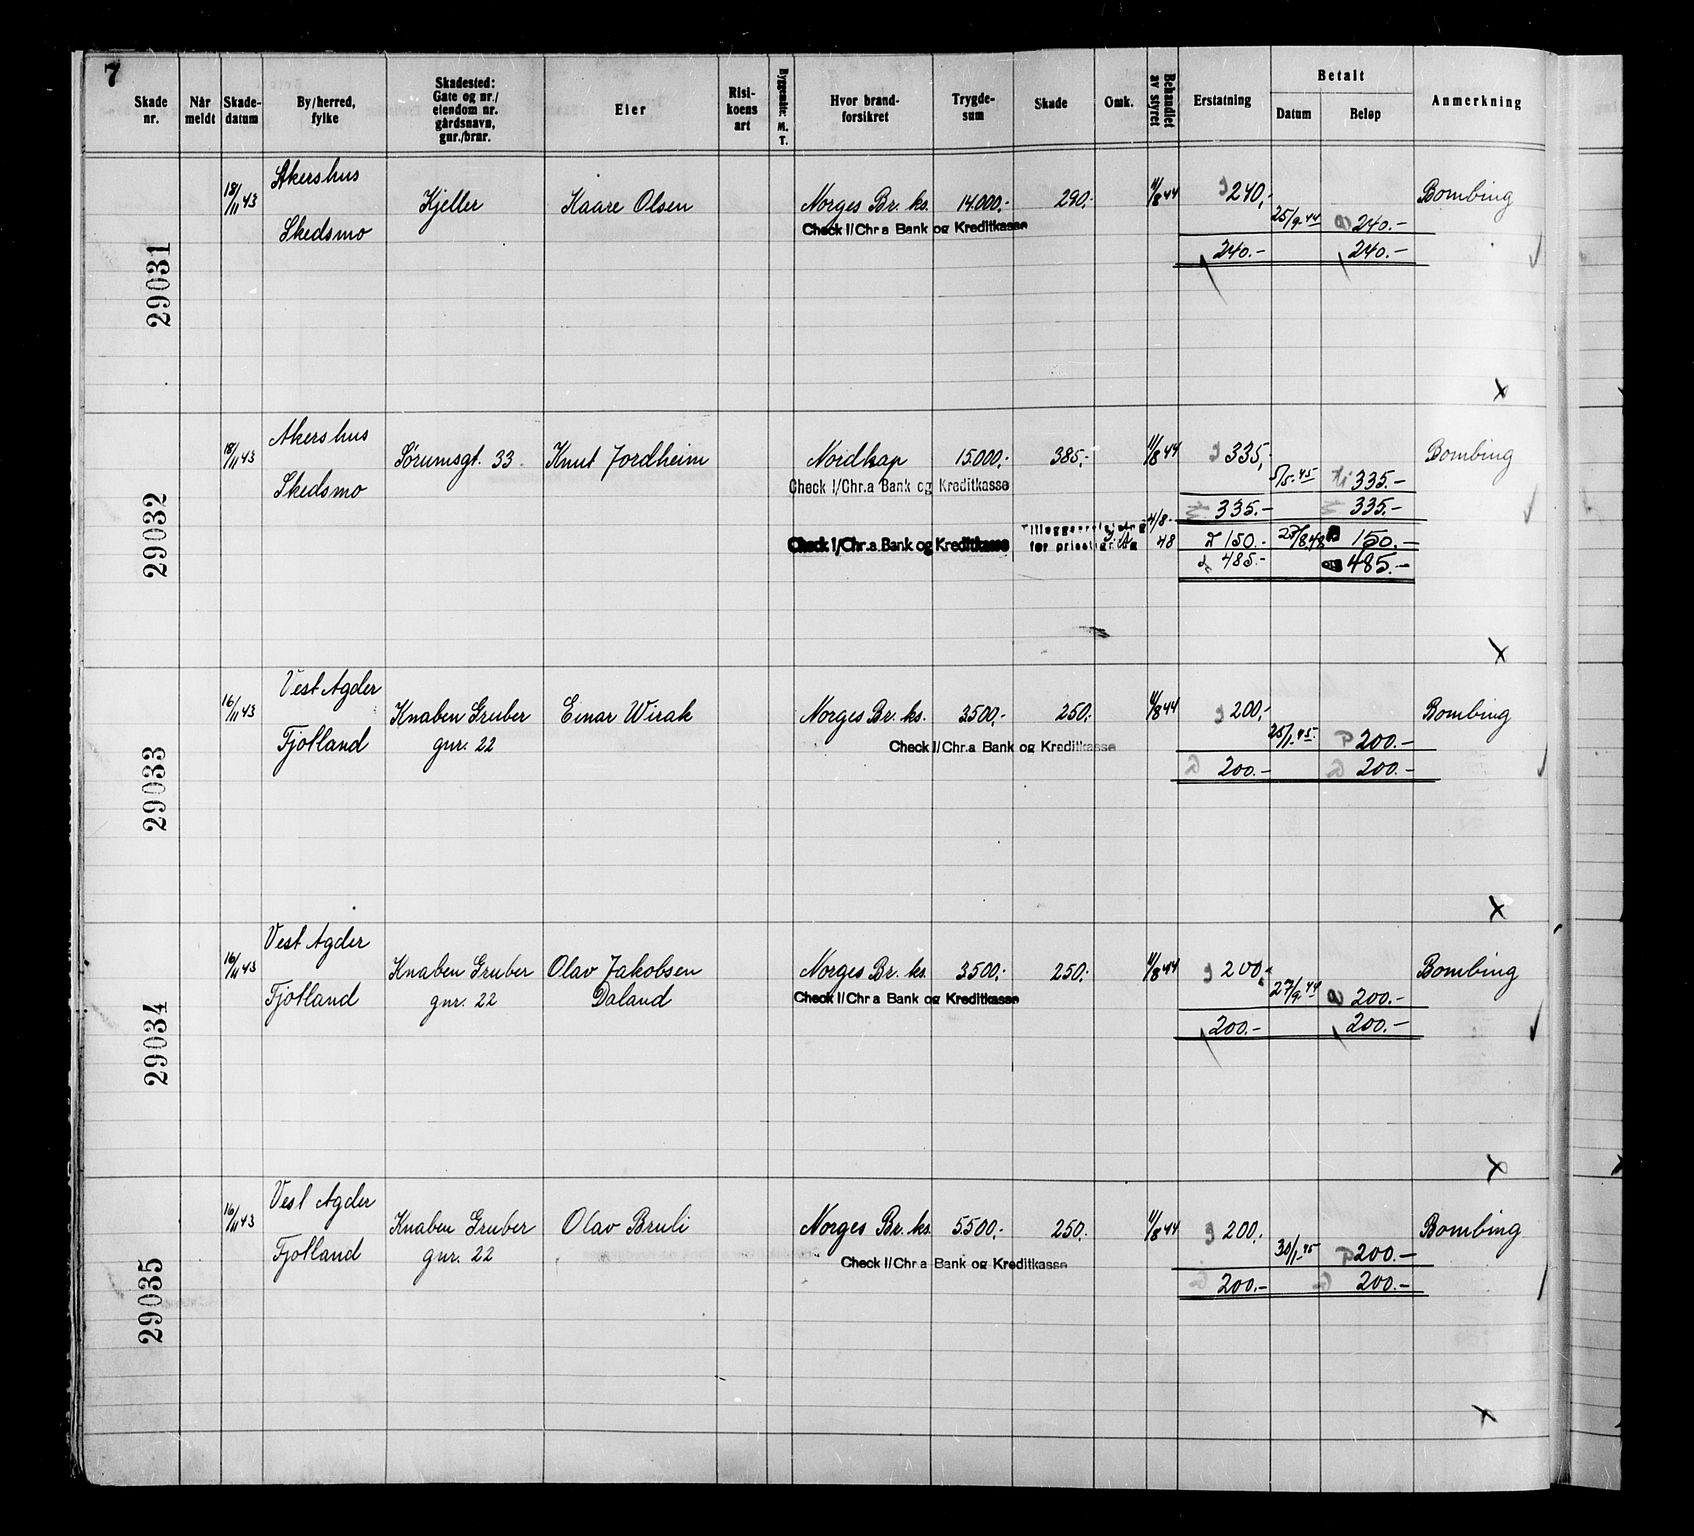 7
Skade nr.
Når meldt
Skade-datum
By/herred, fylke
Skadested: Gate og nr./ eiendom nr. gårdsnavn, gnr./brnr.
Eier
Risi-koens art
M. T.
Hvor brand-forsikret
Trygde-sum
Skade
Omk.
Behandlet av styret
Erstatning
Betalt
Datum
Beløp
Anmerkning
29031
18/11 43
Akershus
Skedsmo
Kjeller
Kaare Olsen
Norges Br. ks.
14.000,-
290,-
11/8 44
240,-
Bombing
Check I/Chr.a Bank og Kreditkasse
25/9.44
240.-
240.-
240.-
29032
18/11 43
Akershus
Skedsmo
Sørumsgt. 33
Knut Jordheim
Nordkap
15.000,-
385,-
11/8 44
335,-
Bombing
Check I/Chr.a Bank og Kreditkasse
5/5.45
335.-
335.-
335.-
Check I/Chr.a Bank og Kreditkasse
for
4/8-48
150.-
150.-
485.-
485.-
29033
16/11 43
Vest Agder
Fjotland
Knaben Gruber
gnr. 22
Einar Wirak
Norges Br. ks.
3500,-
250,-
11/8 44
200,-
Bombing
Check I/Chr.a Bank og Kreditkasse
25/1.45.
200.-
200.-
200.-
29034
16/11 43
Vest Agder
Fjotland
Knaben Gruber
gnr. 22
Olav Jakobsen
Daland
Norges Br. ks.
3500,-
250,-
11/8 44
200,-
Bombing
Check I/Chr.a Bank og Kreditkasse
27/9.44
200.-
200.-
200.-
29035
16/11 43
Vest Agder
Fjotland
Knaben Gruber
gnr. 22
Olav Bruli
Norges Br. ks.
5500,-
250,-
11/8 44
200,-
Bombing
Check I/Chr.a Bank og Kreditkasse
30/1.45
200.-
200.-
200.-